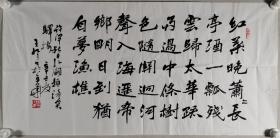 紅葉晚蕭〻長
亭酒一瓢残
雲歸太華疏
雨過中條樹
色随關迥河
聲入海遥帝
鄉明日到猶
自夢漁樵
許渾秋日赴闕題潼關
驛樓